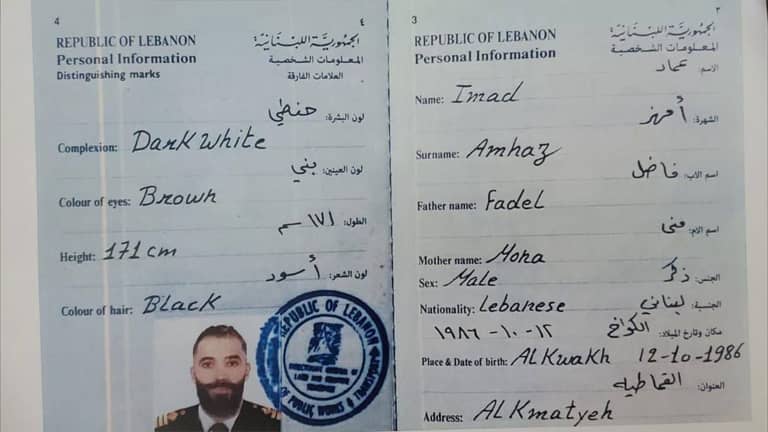 4
٤
REPUBLIC OF LEBANON
الجمهوريّة اللبنانيّة
Personal Information
المعلومات الشخصية
Distinguishing marks
العلامات الفارقة
لون البشرة: حنطي
Complexion: Dark White
لون العينين: بني
Colour of eyes: Brown
الطول: ١٧١ سم
Height: 171 cm
لون الشعر: أسود
Colour of hair: Black
REPUBLIC OF LEBANON
OF PUBLIC WORKS & TRANSPORT
3
٣
REPUBLIC OF LEBANON
الجمهوريّة اللبنانيّة
Personal Information
المعلومات الشخصية
الاسم: عماد
Name: Imad
الشهرة: أمهز
Surname: Amhaz
اسم الاب: فاضل
Father name: Fadel
اسم الام: منى
Mother name: Mona
Sex: Male
الجنس: ذكر
Nationality: Lebanese
الجنسية: لبناني
مكان وتارخ الميلاد: الكواخ ١٢-١٠-١٩٨٦
Place & Date of birth: AL Kwakh 12-10-1986
العنوان: القماطيه
Address: AL Kmatyeh